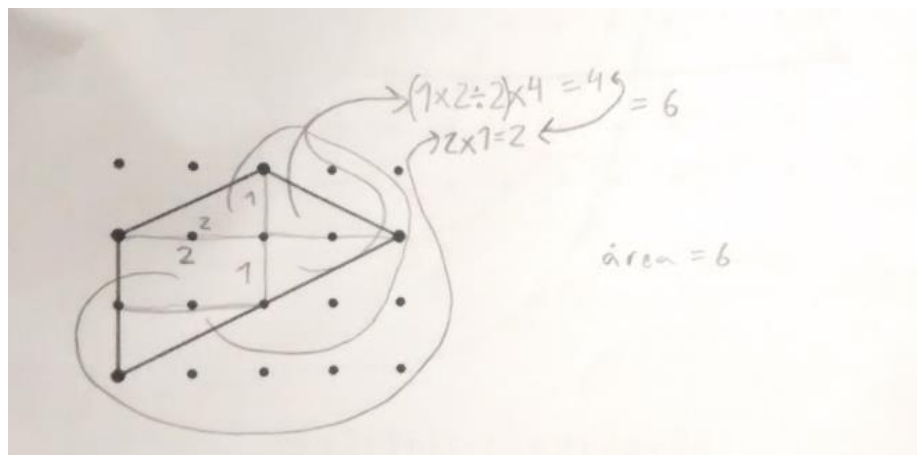 (1×2÷2)×4 = 4
= 6
2×1=2
1
2
2
1
área = 6